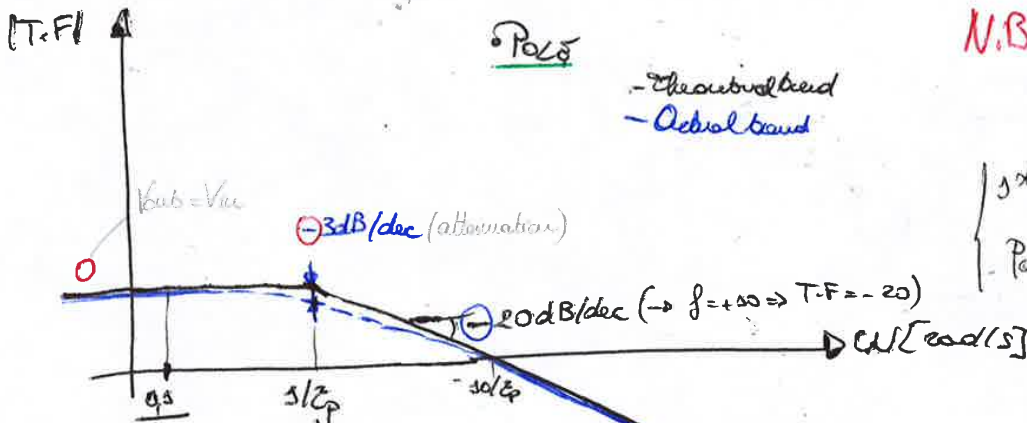 |T.F|
• Pole
N.B
- Theoretical trend
- Actual trend
Vout = Vin
0
-3dB/dec (attenuation)
-20dB/dec (→ f=+10 => T.F = -20)
ω [rad/s]
0,1
1/τp
10/τp
1x
- Po